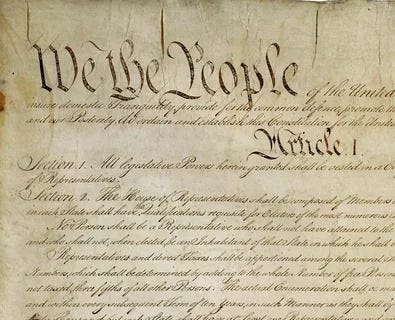 We the People of the United
insure domestic Tranquility, provide for the common defence, promote the
and our Posterity, do ordain and establish this Constitution for the United
Article. I.
Section. 1. All legislative Powers herein granted shall be vested in a Co
of Representatives.
Section. 2. The House of Representatives shall be composed of Members
in each State shall have the Qualifications requisite for Electors of the most numerous
No Person shall be a Representative who shall not have attained to the
and who shall not, when elected, be an Inhabitant of that State in which he shall
Representatives and direct Taxes shall be apportioned among the several
Numbers, which shall be determined by adding to the whole Number of free Persons
not taxed, three fifths of all other Persons. The actual Enumeration shall be m
and within every subsequent Term of ten Years, in such Manner as they shall by